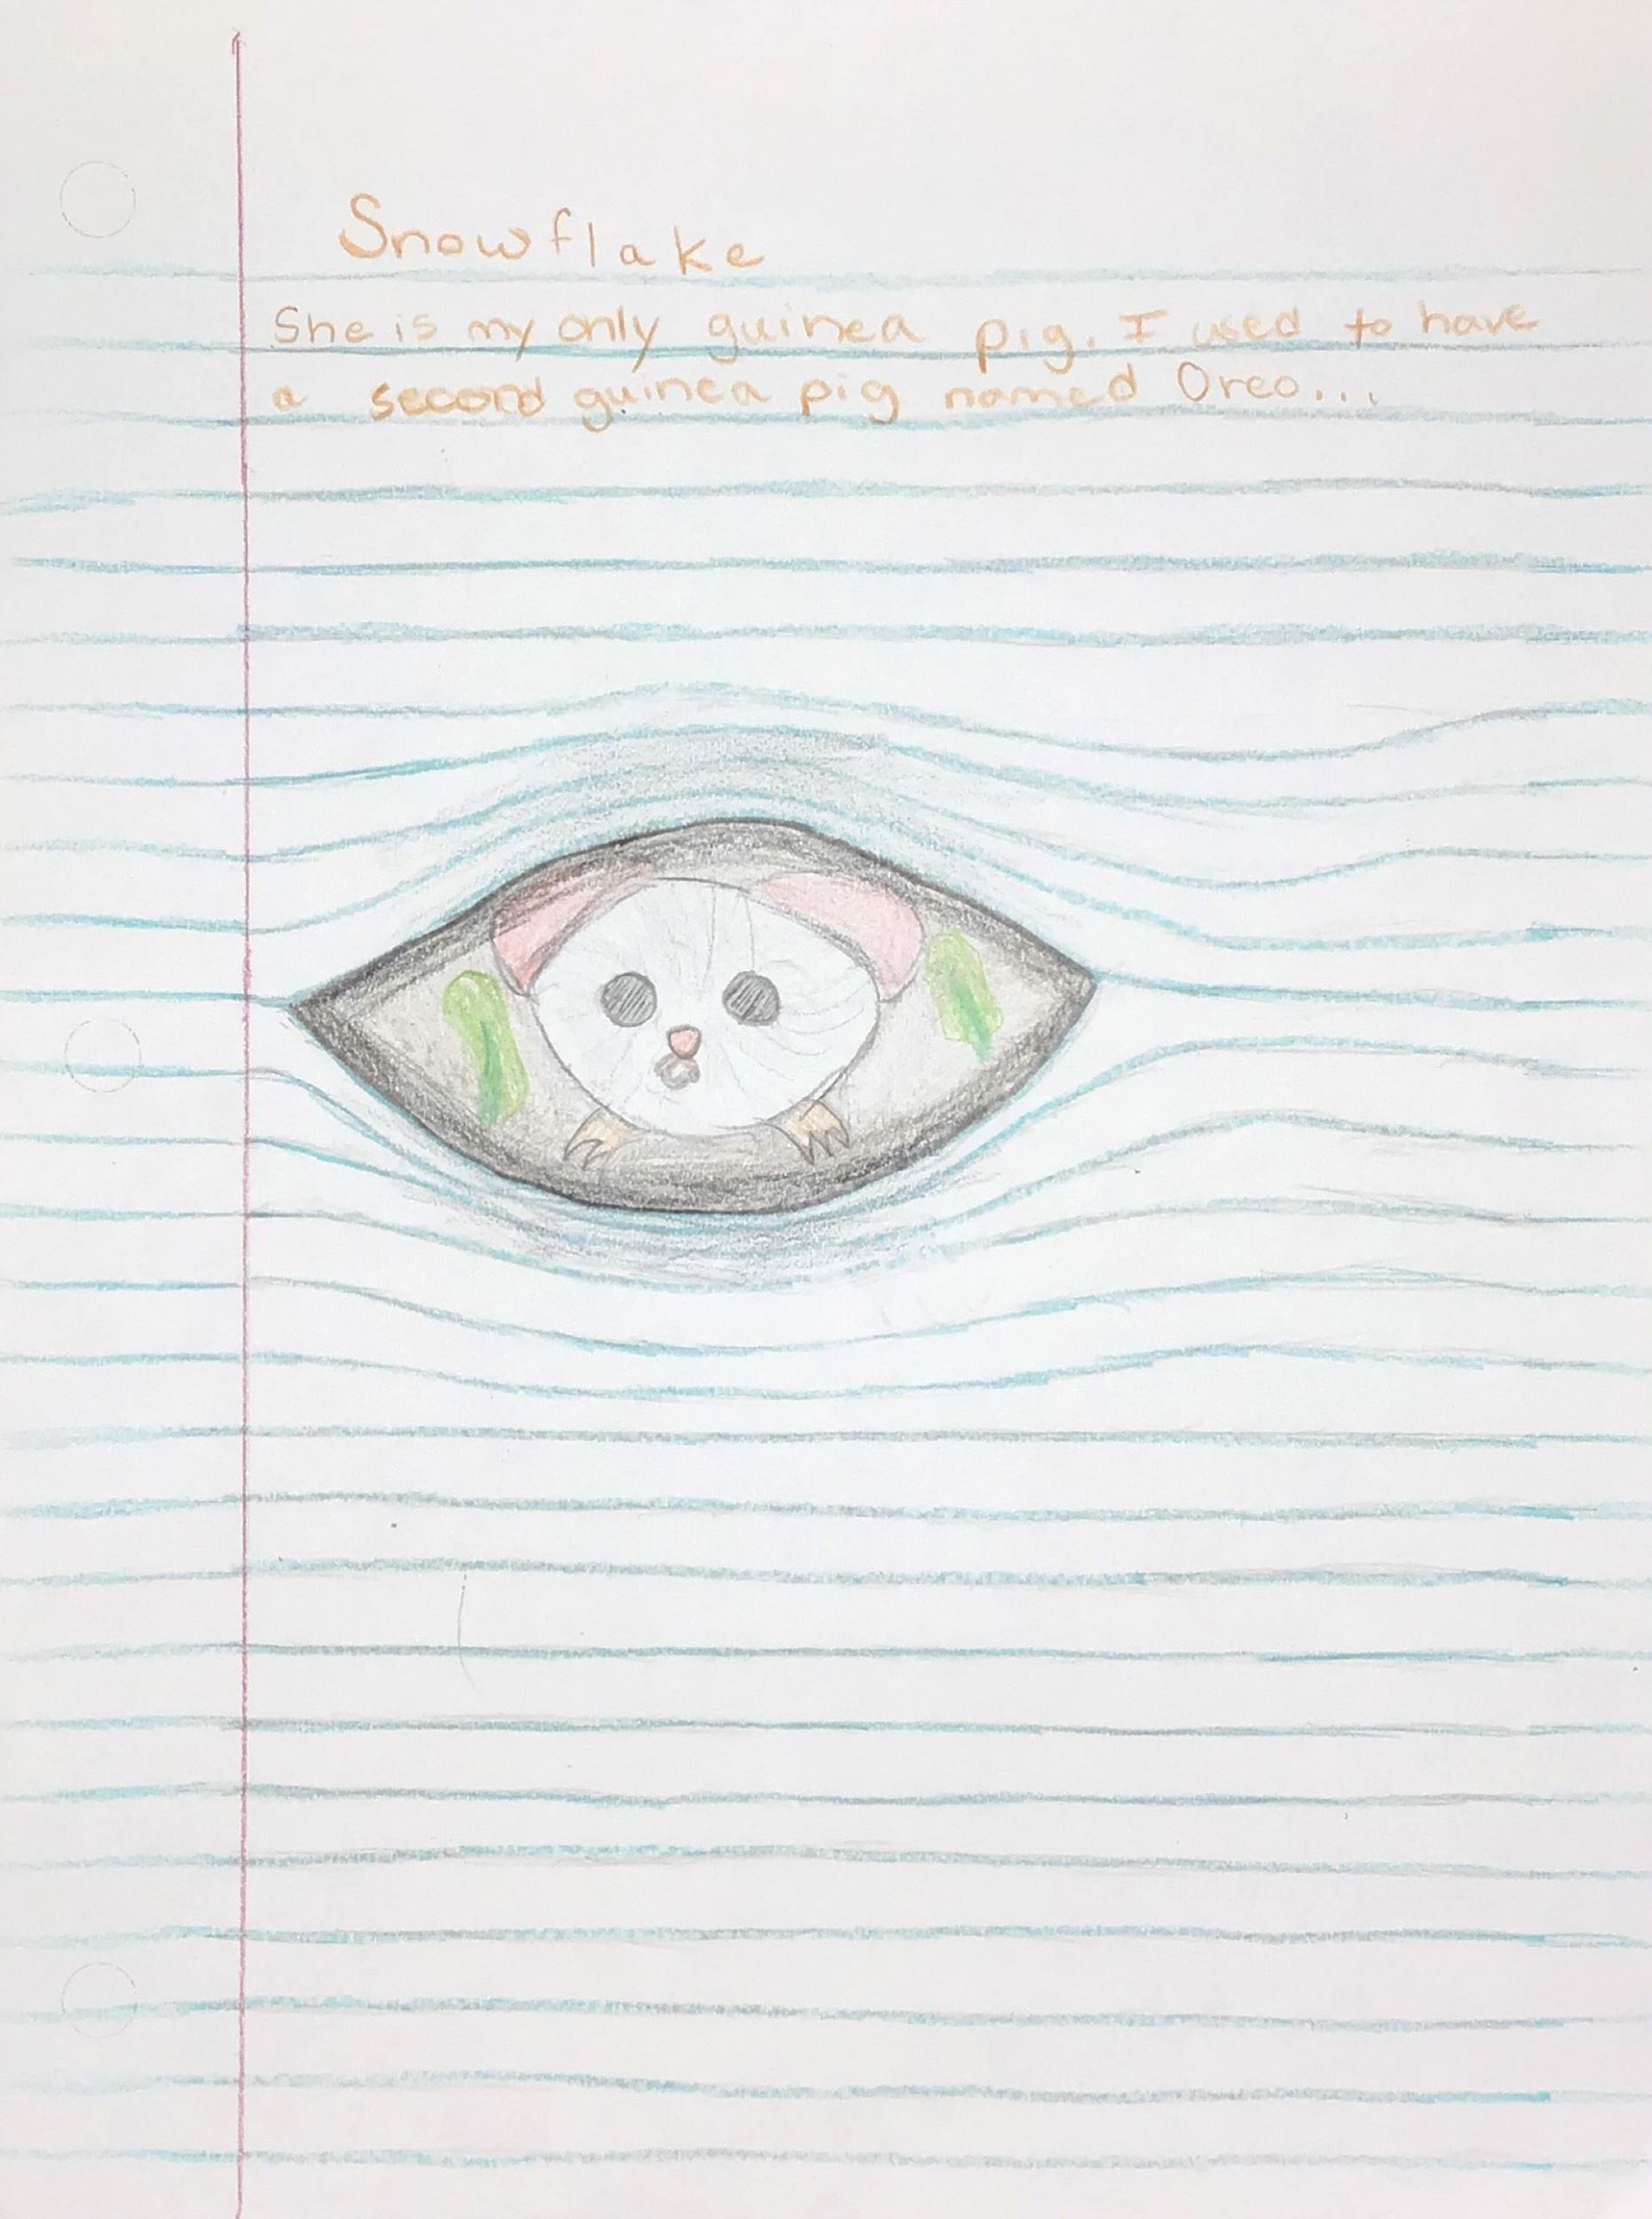 Snowflake
She is my only guinea pig. I used to have
a second guinea pig named Oreo...